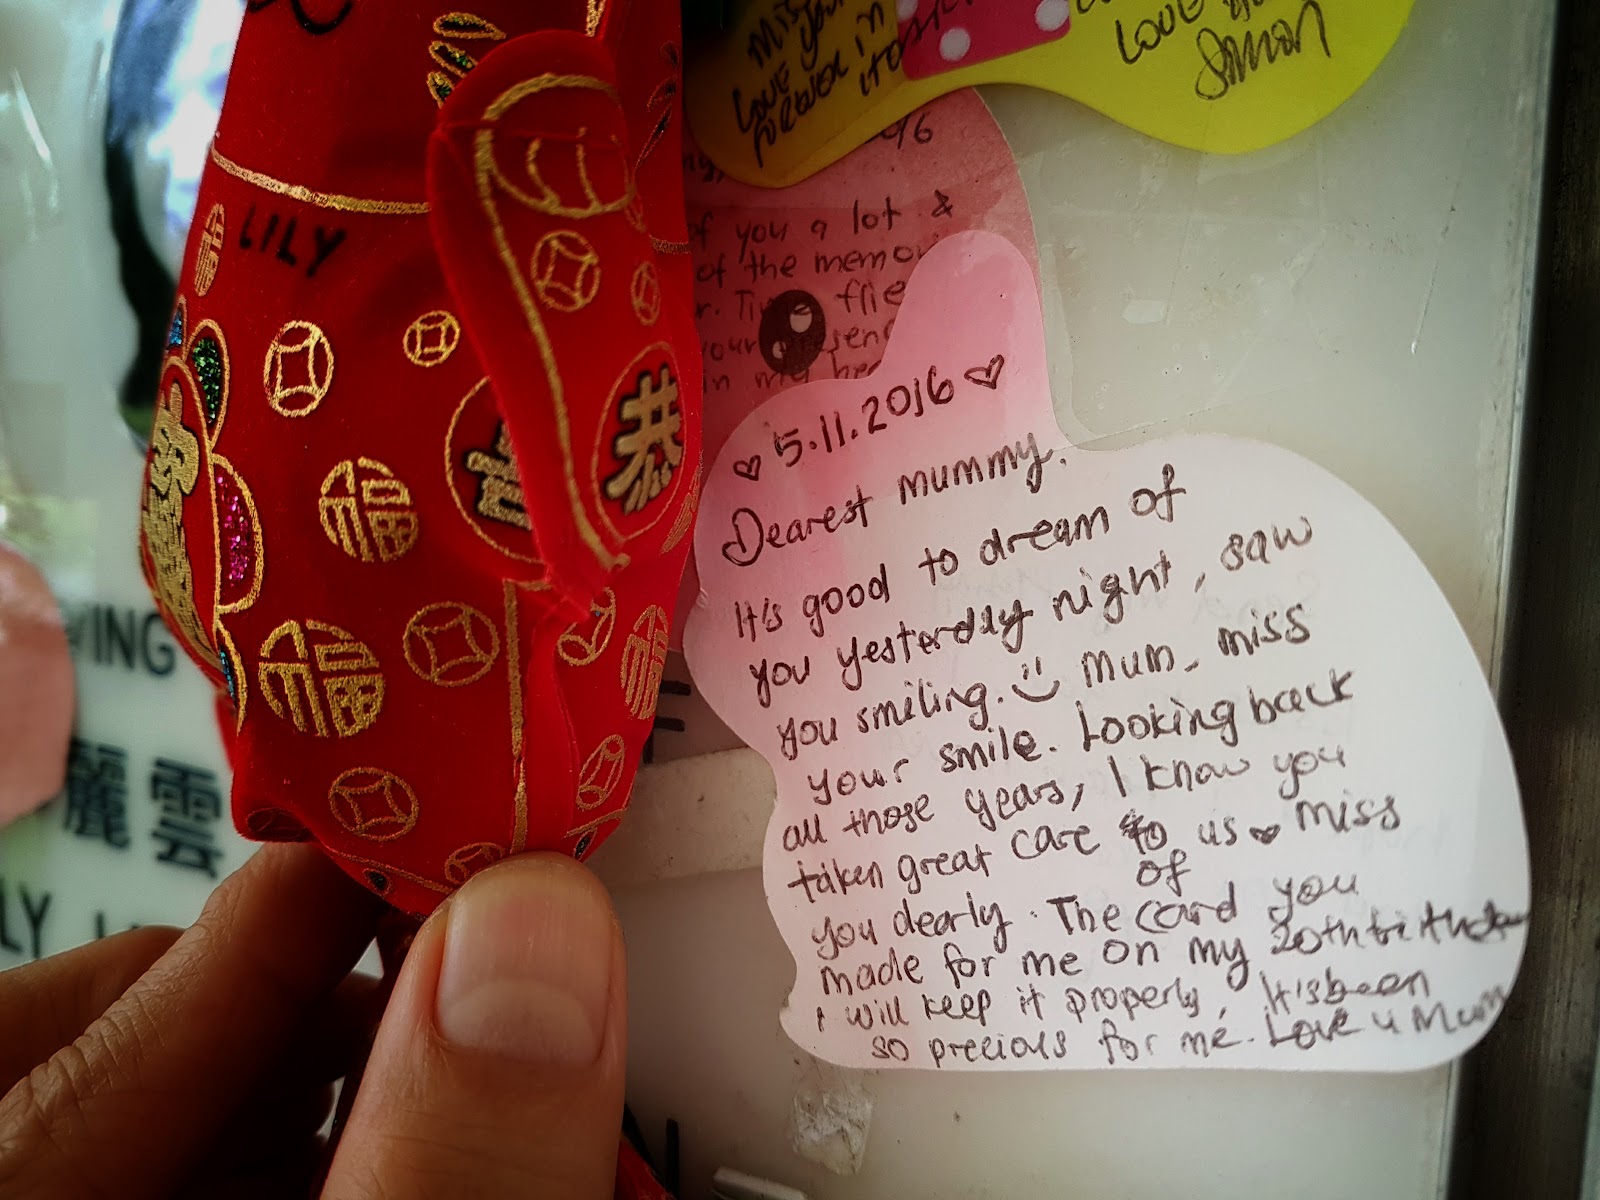 Miss you
Love you
in
Love you
Simon
LILY
96
of you a lot &
of the memo
r. Time flie
your presen
in my he
♡ 5.11.2016 ♡
Dearest mummy.
It's good to dream of
you yesterday night, saw
you smiling. Mum, miss
your smile. Looking back
all those years, I know you
taken great care to us ♥ miss
of
you dearly. The card you
made for me on my 20th birthday
I will keep it properly, It's been
so precious for me. Love u Mum
福
福
福
福
恭
VING
麗雲
LY